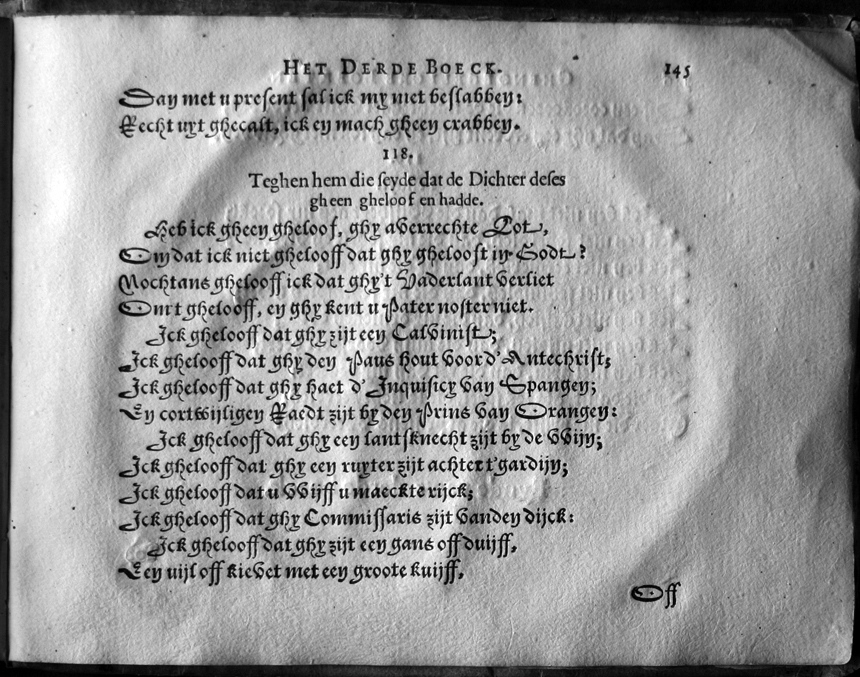 HET DERDE BOECK. 145
Dan met u present sal ick my niet beslabben:
Recht uyt ghecalt, ick en mach gheen crabben.
118.
Teghen hem die seyde dat de Dichter deses
gheen gheloof en hadde.
Heb ick gheen gheloof, ghy averrechte Zot,
Om dat ick niet gelooff dat ghy ghelooft in Godt?
Nochtans ghelooff ick dat ghy't Vaderlant verliet
Omt ghelooff, en ghy kent u Pater noster niet.
Ick ghelooff dat ghy zijt een Calvinist;
Ick ghelooff dat ghy den Paus hout voor d'Antechrist;
Ick ghelooff dat ghy haet d'Inquisicy van Spangen;
En cortwijligen Raedt zijt by den Prins van Orangen:
Ick ghelooff dat ghy een lantsknecht zijt by de Wijn;
Ick ghelooff dat ghy een ruyter zijt achter t'gardijn;
Ick ghelooff dat u Wijff u maeckte rijck;
Ick ghelooff dat ghy Commissaris zijt vanden dijck:
Ick ghelooff dat ghy zijt een gans off duijff,
Een uijl off kievet met een groote kuijff,
Off